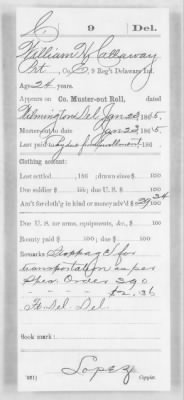 C | 9 | Del.
William H. Callaway
Pvt, Co. C, 9 Reg't Delaware Inf.
Age 24 years.
Appears on Co. Muster-out Roll, dated
Wilmington Del Jan 23, 1865.
Muster-out to date Jan 23, 1865.
Last paid to , 186
Clothing account:
Last settled , 186 ; drawn since $ 100
Due soldier $ 100; due U. S. $ 100
Am't for cloth'g in kind or money adv'd $ 29 34/100
Due U. S. for arms, equipments, &c., $ 100
Bounty paid $ 100; due $ 100
Remarks: Stoppage for
transportation as per
Order 390
" " " $2.36
Ft Del Del
Book mark:
Lopez
(361) Copyist.